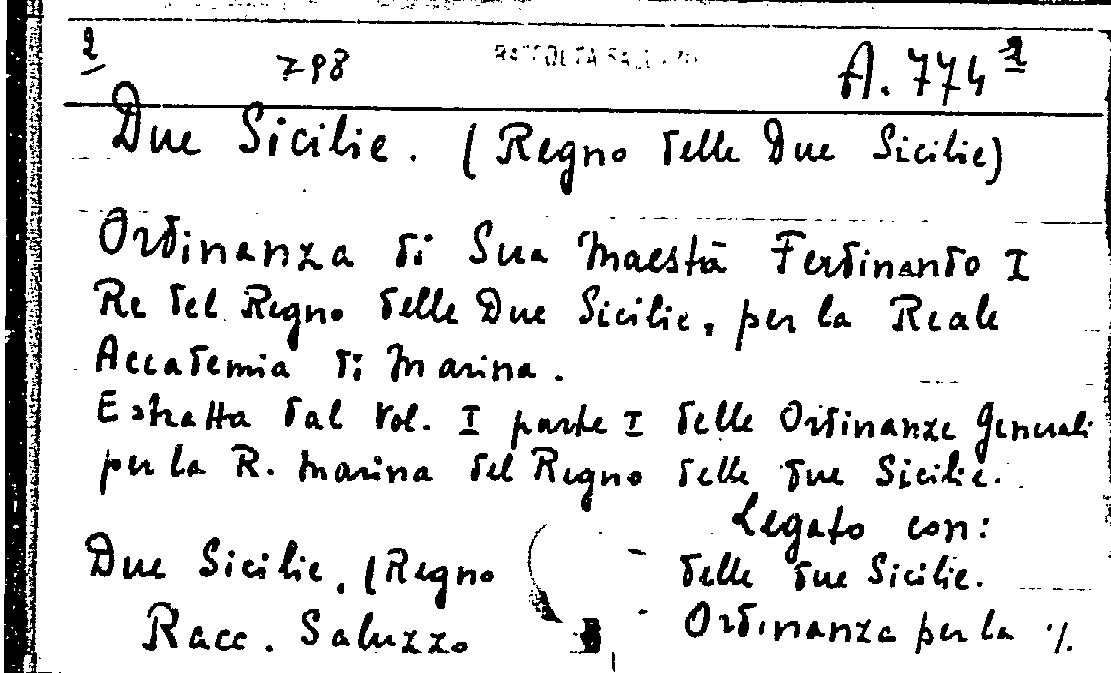 2 798 RACCOLTA SALUZZO A. 774 2
Due Sicilie. (Regno delle Due Sicilie)
Ordinanza di Sua Maestà Ferdinando I
Re del Regno delle Due Sicilie, per la Reale
Accademia di Marina.
Estratta dal Vol. I parte I delle Ordinanze Generali
per la R. Marina del Regno delle due Sicilie.
Legato con:
Due Sicilie, (Regno delle due Sicilie.
Racc. Saluzzo Ordinanza per la ./.